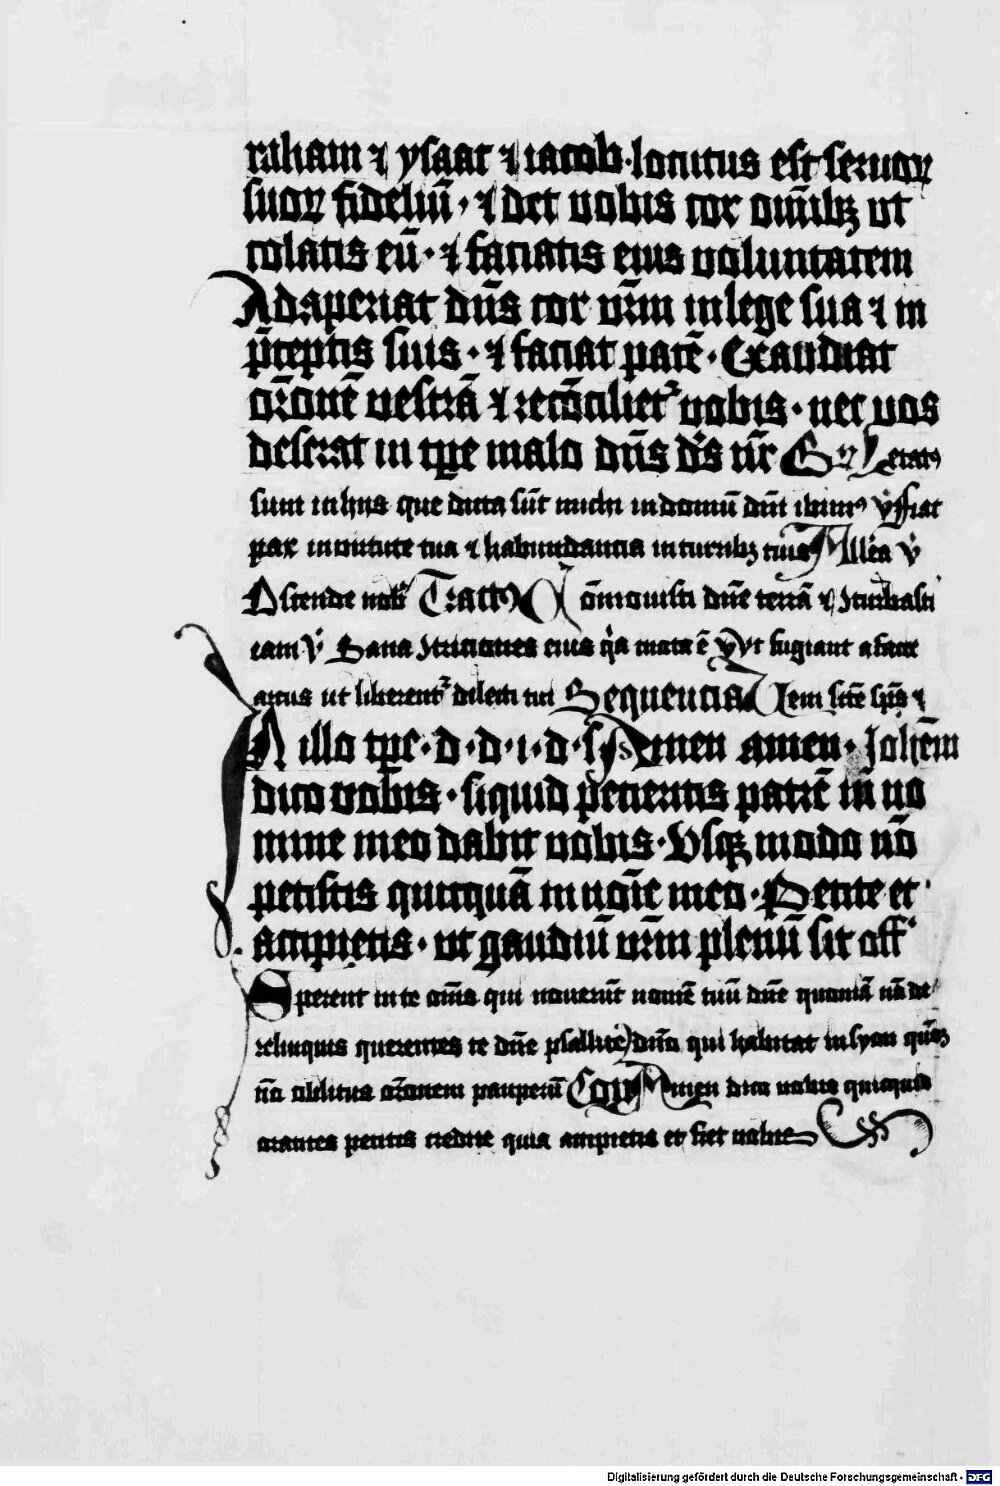 raham ⁊ ysaac ⁊ iacob · locutus est seruoꝝ
suoꝝ fideliū · ⁊ det vobis cor om̄ibꝫ vt
colatis eū · ⁊ faciatis eius voluntatem
Adaperiat dn̄s cor vr̄m in lege sua ⁊ in
p̄ceptis suis · ⁊ faciat pacē · Exaudiat
or̄onē vestrā ⁊ recōcilietᷣ vobis · nec vos
deserat in tꝑe malo dn̄s dˢ nr̄ Gͬ Letatꝰ
sum in hijs que dicta sūt michi in domū dn̄i ibimꝰ ꝟ Fiat
pax in virtute tua ⁊ habundancia in turribꝫ tuis Alleā ꝟ
Ostende nobˢ Tractꝰ Cōmouisti dn̄e terrā ⁊ ꝯturbasti
eam ꝟ Sana ꝯtriciones eius qͣ mota ē ꝟ Vt fugiant a facie
arcus ut liberentᷣ dilecti tui Sequencia Veni sc̄tē sp̄s ⁊
In illo tꝑe · d · d · i · d · s Amen amen · Johēm
dico vobis · si quid petieritis patrē in no
mine meo dabit vobis · Vsqꝫ modo nō
petistis quicquā in noīe meo · Petite et
accipietis · vt gaudiū vr̄m plenū sit off
Sperent in te om̄s qui nouerūt nomē tuū dn̄e quoniā nō de
relinquis querentes te dn̄e psallite dn̄o qui habitat in syon qm̄
nō oblitus or̄onem pauperū Coꝫ Amen dico vobis quicquid
orantes petitis credite quia accipietis et fiet vobis
Digitalisierung gefördert durch die Deutsche Forschungsgemeinschaft - DFG